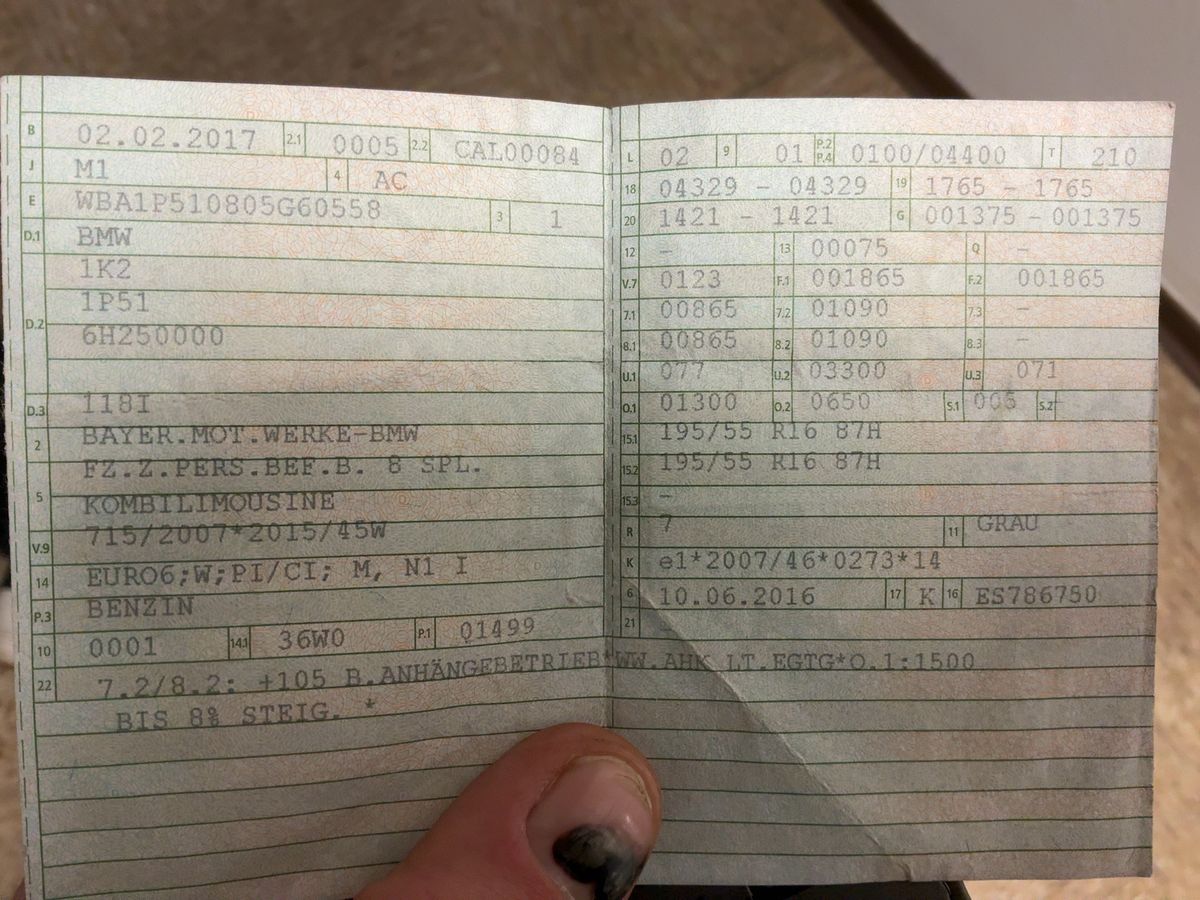 B 02.02.2017 2.1 0005 2.2 CAL00084
J M1 4 AC
E WBA1P510805G60558 3 1
D.1 BMW
D.2 1K2
1P51
6H250000
D.3 118I
2 BAYER.MOT.WERKE-BMW
5 FZ.Z.PERS.BEF.B. 8 SPL.
KOMBILIMOUSINE
V.9 715/2007*2015/45W
14 EURO6;W;PI/CI; M, N1 I
P.3 BENZIN
10 0001 14.1 36W0 P.1 01499
L 02 9 01 P.2 P.4 0100/04400 T 210
18 04329 - 04329 19 1765 - 1765
20 1421 - 1421 G 001375 - 001375
12 - 13 00075 Q -
V.7 0123 F.1 001865 F.2 001865
7.1 00865 7.2 01090 7.3 -
8.1 00865 8.2 01090 8.3 -
U.1 077 U.2 03300 U.3 071
O.1 01300 O.2 0650 S.1 005 S.2
15.1 195/55 R16 87H
15.2 195/55 R16 87H
15.3 -
R 7 11 GRAU
K e1*2007/46*0273*14
6 10.06.2016 17 K 16 ES786750
21 -
22 7.2/8.2: +105 B.ANHÄNGEBETRIEB*WW.AHK LT.EGTG*O.1:1500
BIS 8% STEIG. *